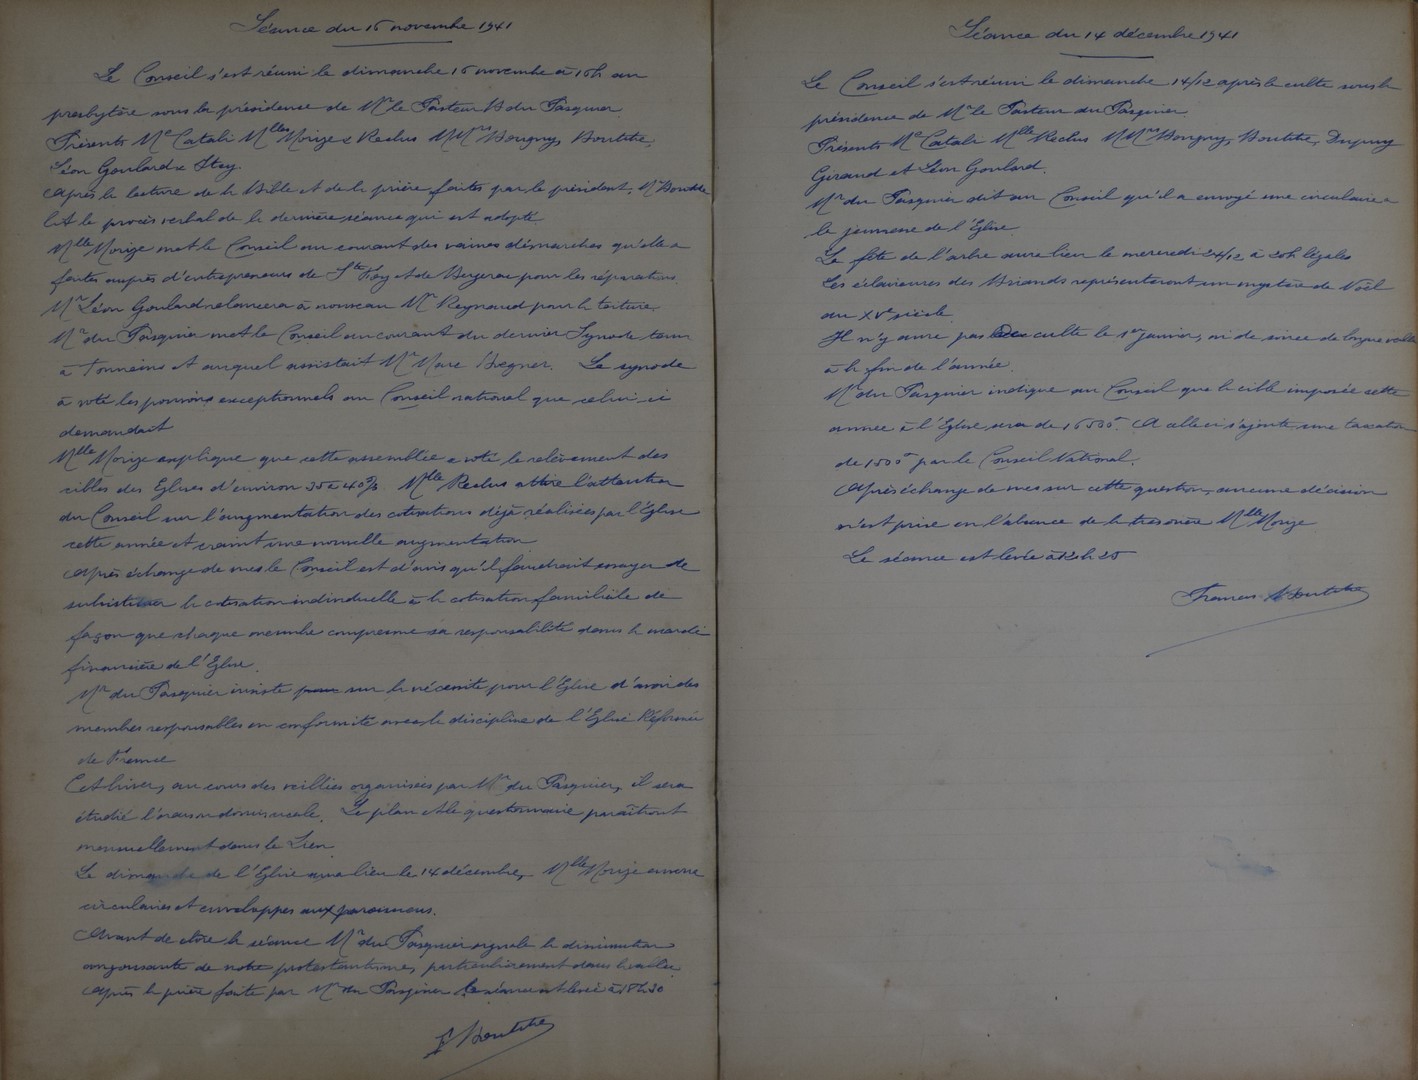 Séance du 16 novembre 1941
Le Conseil s'est réuni le dimanche 16 novembre à 16h au
presbytère sous la présidence de Mr le Pasteur B du Pasquier
Présents Me Catali Mlles Morize & Reclus MMrs Bougny, Boutitie,
Léon Goulard & Itey.
Après la lecture de la Bible et de la prière faites par le président, Mr Boutitie
lit le procès verbal de la dernière séance qui est adopté
Mlle Morize met le Conseil au courant des vaines démarches qu'elle a
faites auprès d'entrepreneurs de Ste Foy et de Bergerac pour les réparations.
Mr Léon Goulard relancera à nouveau Mr Reynaud pour la toiture.
Mr du Pasquier met le Conseil au courant du dernier Synode tenu
à Tonneins et auquel assistait Mr Marc Boegner. Le synode
a voté les pouvoirs exceptionnels au Conseil national que celui-ci
demandait
Mlle Morize explique que cette assemblée a voté le relèvement des
cibles des Eglises d'environ 35 à 40%. Mlle Reclus attire l'attention
du Conseil sur l'augmentation des cotisations déjà réalisées par l'Eglise
cette année et craint une nouvelle augmentation
Après échange de vues le Conseil est d'avis qu'il faudrait essayer de
substituer la cotisation individuelle à la cotisation familiale de
façon que chaque membre comprenne sa responsabilité dans la marche
financière de l'Eglise.
Mr du Pasquier insiste sur la nécessité pour l'Eglise d'avoir des
membres responsables en conformité avec la discipline de l'Eglise Réformée
de France
Cet hiver, au cours des veillées organisées par Mr du Pasquier, il sera
étudié l'oraison dominicale. Le plan et le questionnaire paraîtront
mensuellement dans le Lien
Le dimanche de l'Eglise aura lieu le 14 décembre, Mlle Morize enverra
circulaires et enveloppes aux paroissiens.
Avant de clore la séance Mr du Pasquier signale la diminution
angoissante de notre protestantisme, particulièrement dans la vallée
Après la prière faite par Mr du Pasquier la séance est levée à 18h30
F Boutitie
Séance du 14 décembre 1941
Le Conseil s'est réuni le dimanche 14/12 après le culte sous la
présidence de Mr le Pasteur du Pasquier
Présents Me Catali Mlle Reclus MMrs Bougny, Boutitie, Dupuy
Geraud et Léon Goulard.
Mr du Pasquier dit au Conseil qu'il a envoyé une circulaire à
la jeunesse de l'Eglise
La fête de l'arbre aura lieu le mercredi 24/12 à 20h légales
Les éclaireurs des Briands représenteront un mystère de Noël
du XVe siècle.
Il n'y aura pas de culte le 1er janvier, ni de soirée de longue veille
à la fin de l'année.
Mr du Pasquier indique au Conseil que la cible imposée cette
année à l'Eglise sera de 16500f. A celle ci s'ajoute une taxation
de 1500f par le Conseil National.
Après échange de vues sur cette question, aucune décision
n'est prise en l'absence de la trésorière Mlle Morize
La séance est levée à 12h 25
Francis Boutitie